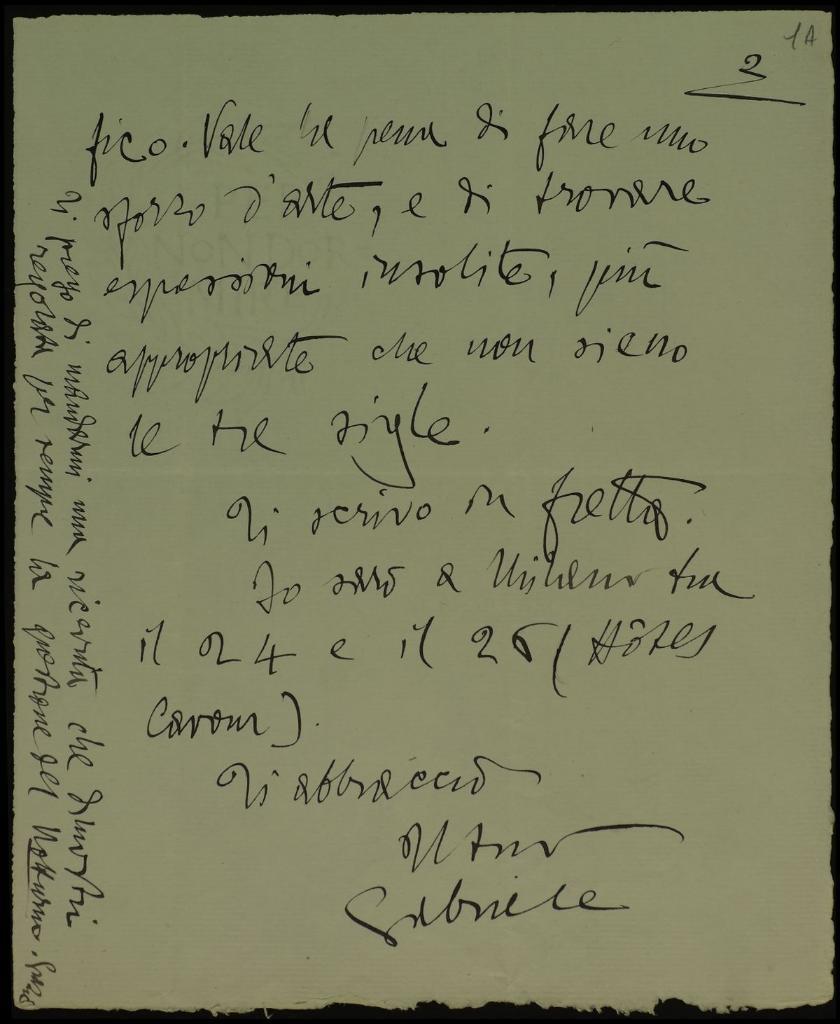 1A
2
fico. Vale la pena di fare uno
sforzo d'arte, e di trovare
espressioni insolite, più
appropriate che non sieno
le tre sigle.
Ti scrivo in fretta.
Io sarò a Milano tra
il 24 e il 26 (Hôtel
Cavour).
Ti abbraccio
Il tuo
Gabriele
Ti prego di mandarmi una ricevuta che dimostri
regolata per sempre la questione del Notturno.